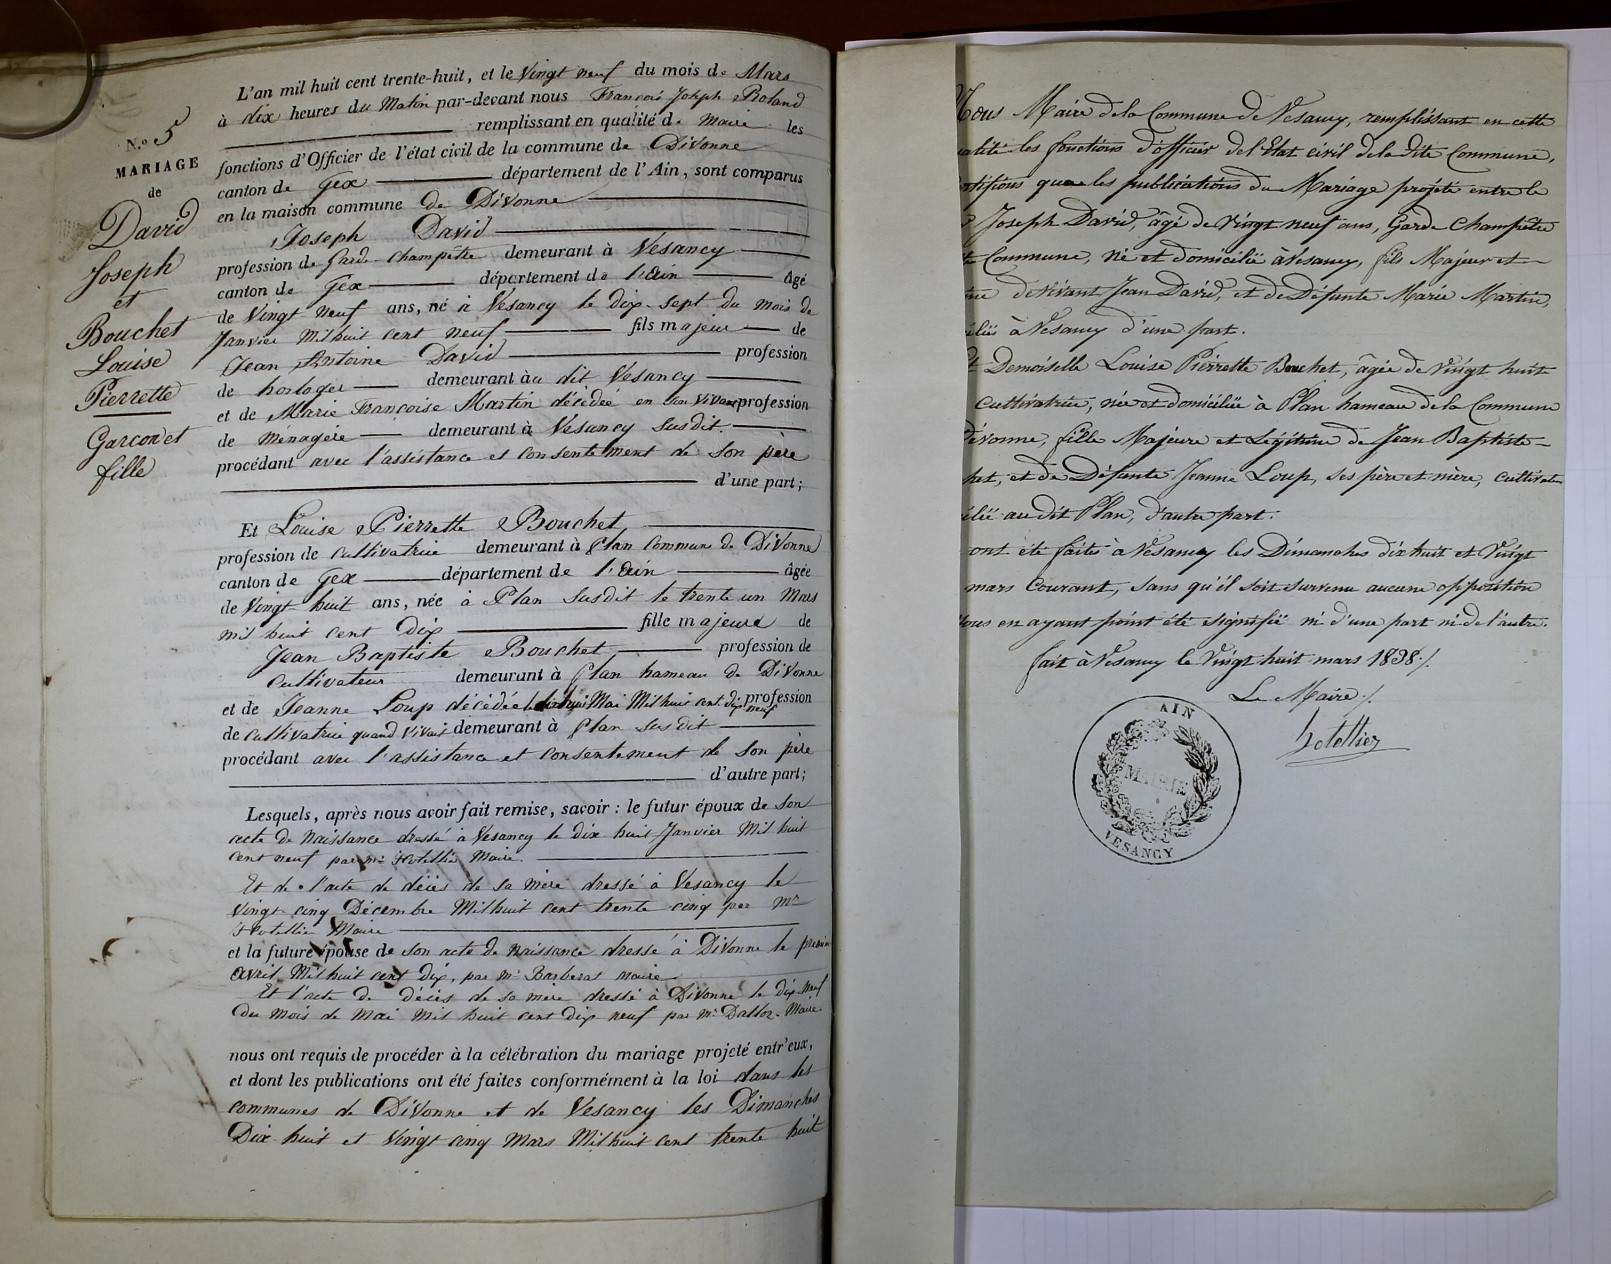 L'an mil huit cent trente-huit, et le Vingt neuf du mois de Mars
à dix heures du Matin par-devant nous François Joseph Roland
remplissant en qualité de Maire les
fonctions d'Officier de l'état civil de la commune de Divonne
canton de Gex département de l'Ain, sont comparus
en la maison commune de Divonne
Joseph David
profession de Garde champêtre demeurant à Vesancy
canton de Gex département de l'Ain âgé
de Vingt neuf ans, né à Vesancy le dix-sept du mois de
Janvier mil huit cent neuf fils majeur de
Jean Antoine David profession
de horloger demeurant au dit Vesancy
et de Marie Françoise Martin décédée en son vivant profession
de Ménagère demeurant à Vesancy susdit.
procédant avec l'assistance et consentement de son père
d'une part;
Et Louise Pierrette Bouchet
profession de Cultivatrice demeurant à Plan Commune de Divonne
canton de Gex département de l'Ain âgée
de Vingt huit ans, née à Plan susdit le trente un Mars
mil huit cent dix fille majeure de
Jean Baptiste Bouchet profession de
Cultivateur demeurant à Plan hameau de Divonne
et de Jeanne Loup décédée Mai Mil huit cent dix neuf profession
de Cultivatrice quand vivait demeurant à Plan susdit
procédant avec l'assistance et consentement de son père
d'autre part;
Lesquels, après nous avoir fait remise, savoir: le futur époux de son
acte de Naissance dressé à Vesancy le dix huit Janvier Mil huit
cent neuf par Mr Hotellier Maire.
Et de l'acte de décès de sa mère dressé à Vesancy le
Vingt cinq Décembre Mil huit cent trente cinq par Mr
Hotellier Maire
et la future épouse de son acte de Naissance dressé à Divonne le premier
avril Mil huit cent dix, par Mr Barberat maire
Et l'acte de décès de sa mère dressé à Divonne le dix-neuf
du Mois de Mai Mil huit cent dix neuf par Mr Maire
nous ont requis de procéder à la célébration du mariage projeté entr'eux,
et dont les publications ont été faites conformément à la loi dans les
communes de Divonne et de Vesancy les Dimanches
Dix huit et Vingt cinq Mars Mil huit cent trente huit
N.o 5
MARIAGE
de
David
Joseph
et
Bouchet
Louise
Pierrette
Garçon et
fille
Nous Maire de la Commune de Vesancy, remplissant en cette
ualité les fonctions d'officier de l'Etat civil de la dite Commune,
rtifions que les publications du Mariage projeté entre le
Joseph David, âgé de vingt neuf ans, Garde Champêtre
te Commune, né et domicilié à Vesancy, fils Majeur et
me de vivant Jean David, et de Défunte Marie Martin,
iliés à Vesancy d'une part.
Et Demoiselle Louise Pierrette Bouchet, âgée de Vingt huit
cultivatrice, née et domiciliée à Plan hameau de la Commune
Divonne, fille Majeure et Légitime de Jean Baptiste
het, et de Défunte Jeanne Loup, ses père et mère, cultivateur
ilié au dit Plan, d'autre part.
ont été faites à Vesancy les Dimanches dix huit et Vingt
mars Courant, sans qu'il soit survenu aucune opposition
Nous en ayant point été signifié ni d'une part ni de l'autre.
fait à Vesancy le Vingt huit mars 1838 ./.
Le Maire ./.
Hotellier
AIN
MAIRIE
VESANCY